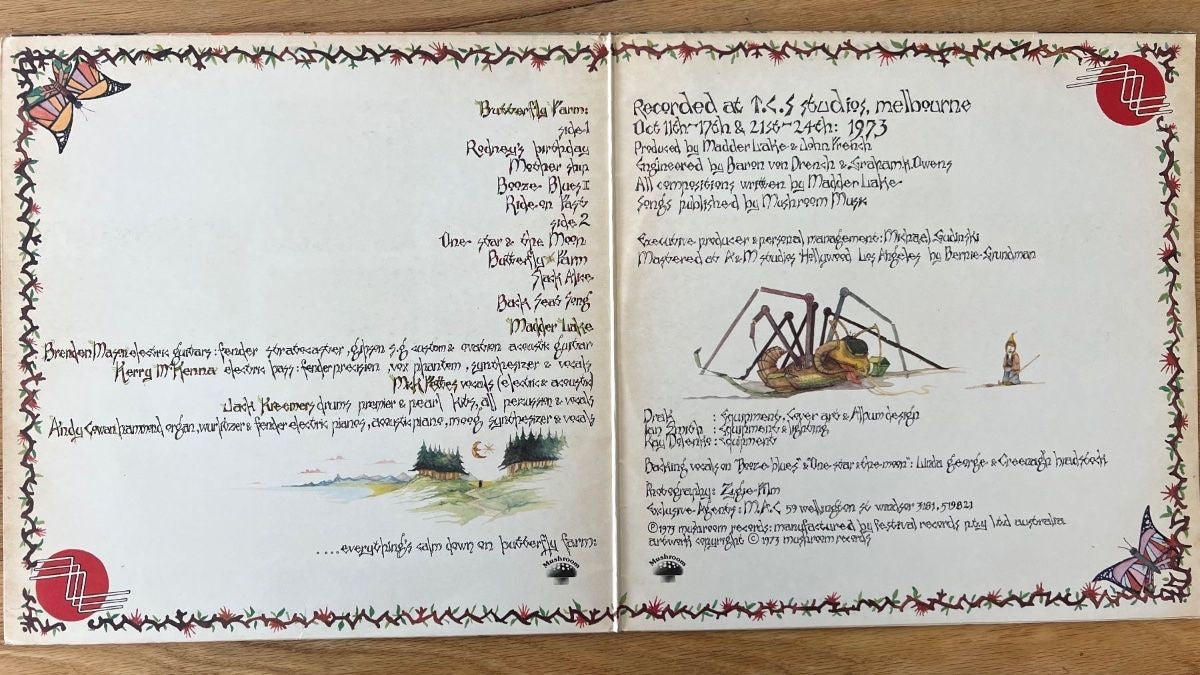 Butterfly Farm:
side 1
Rodney's birthday
Mother ship
Booze Blues
Ride on Past
side 2
One star & the Moon
Butterfly Farm
Slack Alice
Back Seat Song
Madder Lake
Brenden Mason electric guitars: fender stratocaster, gibson s.g custom & ovation acoustic guitar
Kerry McKenna electric bass: fender precision, vox phantom, synthesizer & vocals
Mick Fettes vocals (electric & acoustic)
Jack Kreemers drums premier & pearl kits, all percussion & vocals
Andy Cowan hammond organ, wurlitzer & fender electric pianos, acoustic piano, moog synthesizer & vocals
....everything's calm down on butterfly farm:
Mushroom
Recorded at T.C.S studios, melbourne
Oct 11th-17th & 21st-24th: 1973
Produced by Madder Lake & John French
Engineered by Baron von Drench & Graham K. Owens
All compositions written by Madder Lake
Songs published by Mushroom Music
Executive producer & personal management: Michael Gudinski
Mastered at A & M studios Hollywood Los Angeles by Bernie Grundman
Drak : Equipment, Cover art & Album design
Ian Smith : Equipment & lighting
: Equipment
Backing vocals on "Booze blues" & "One star & the moon": Linda george &
Photography:
Exclusive Agents: M.A.C 59 wellington st windsor 3181, 519821
© 1973 mushroom records: manufactured by festival records pty ltd australia
artwork copyright © 1973 mushroom records
Mushroom